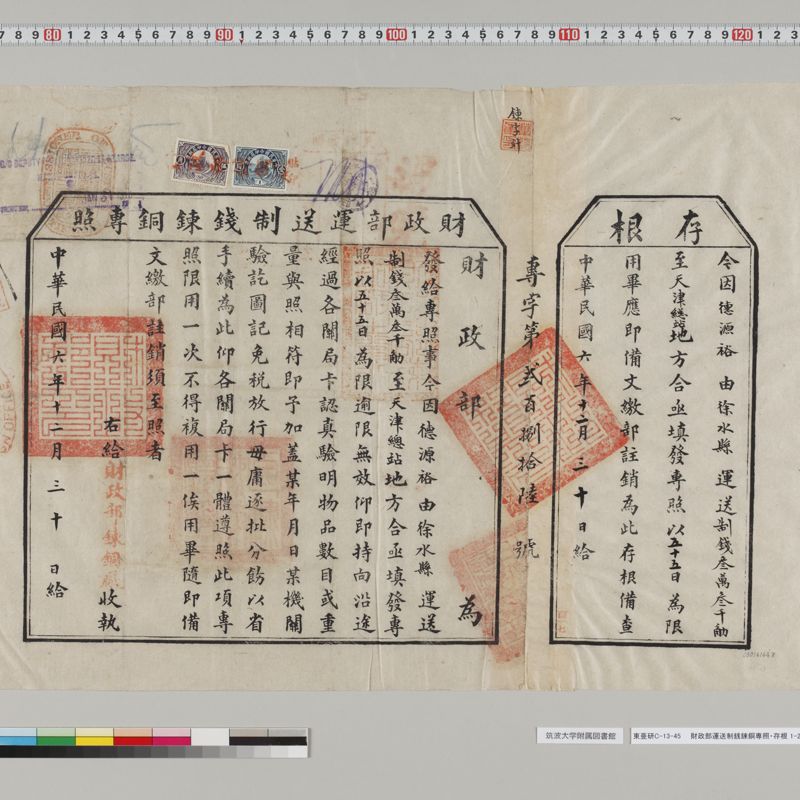 存根
令因德源裕由徐水縣運送制錢叁萬叁千觔
至天津總站地方合亟填發專照以五十五日為限
用畢應即備文繳部註銷為此存根備查
中華民國六年十二月三十日給
專字第貳百捌拾陸號
財政部運送制錢鍊銅專照
財政部為
發給專照事今因德源裕由徐水縣運送
制錢叁萬叁千觔至天津總站地方合亟填發專
照以五十五日為限逾限無效仰即持向沿途
經過各關局卡認真驗明物品數目或重
量與照相符即予加蓋某年月日某機關
驗訖圖記免稅放行毋庸逐批分飭以省
手續為此仰各關局卡一體遵照此項專
照限用一次不得複用一俟用畢隨即備
文繳部註銷須至照者
右給財政部鍊銅廠收執
中華民國六年十二月三十日給
筑波大学附属図書館
東亜研C-13-45 財政部運送制銭錬銅専照・存根
80 90 100 110 120